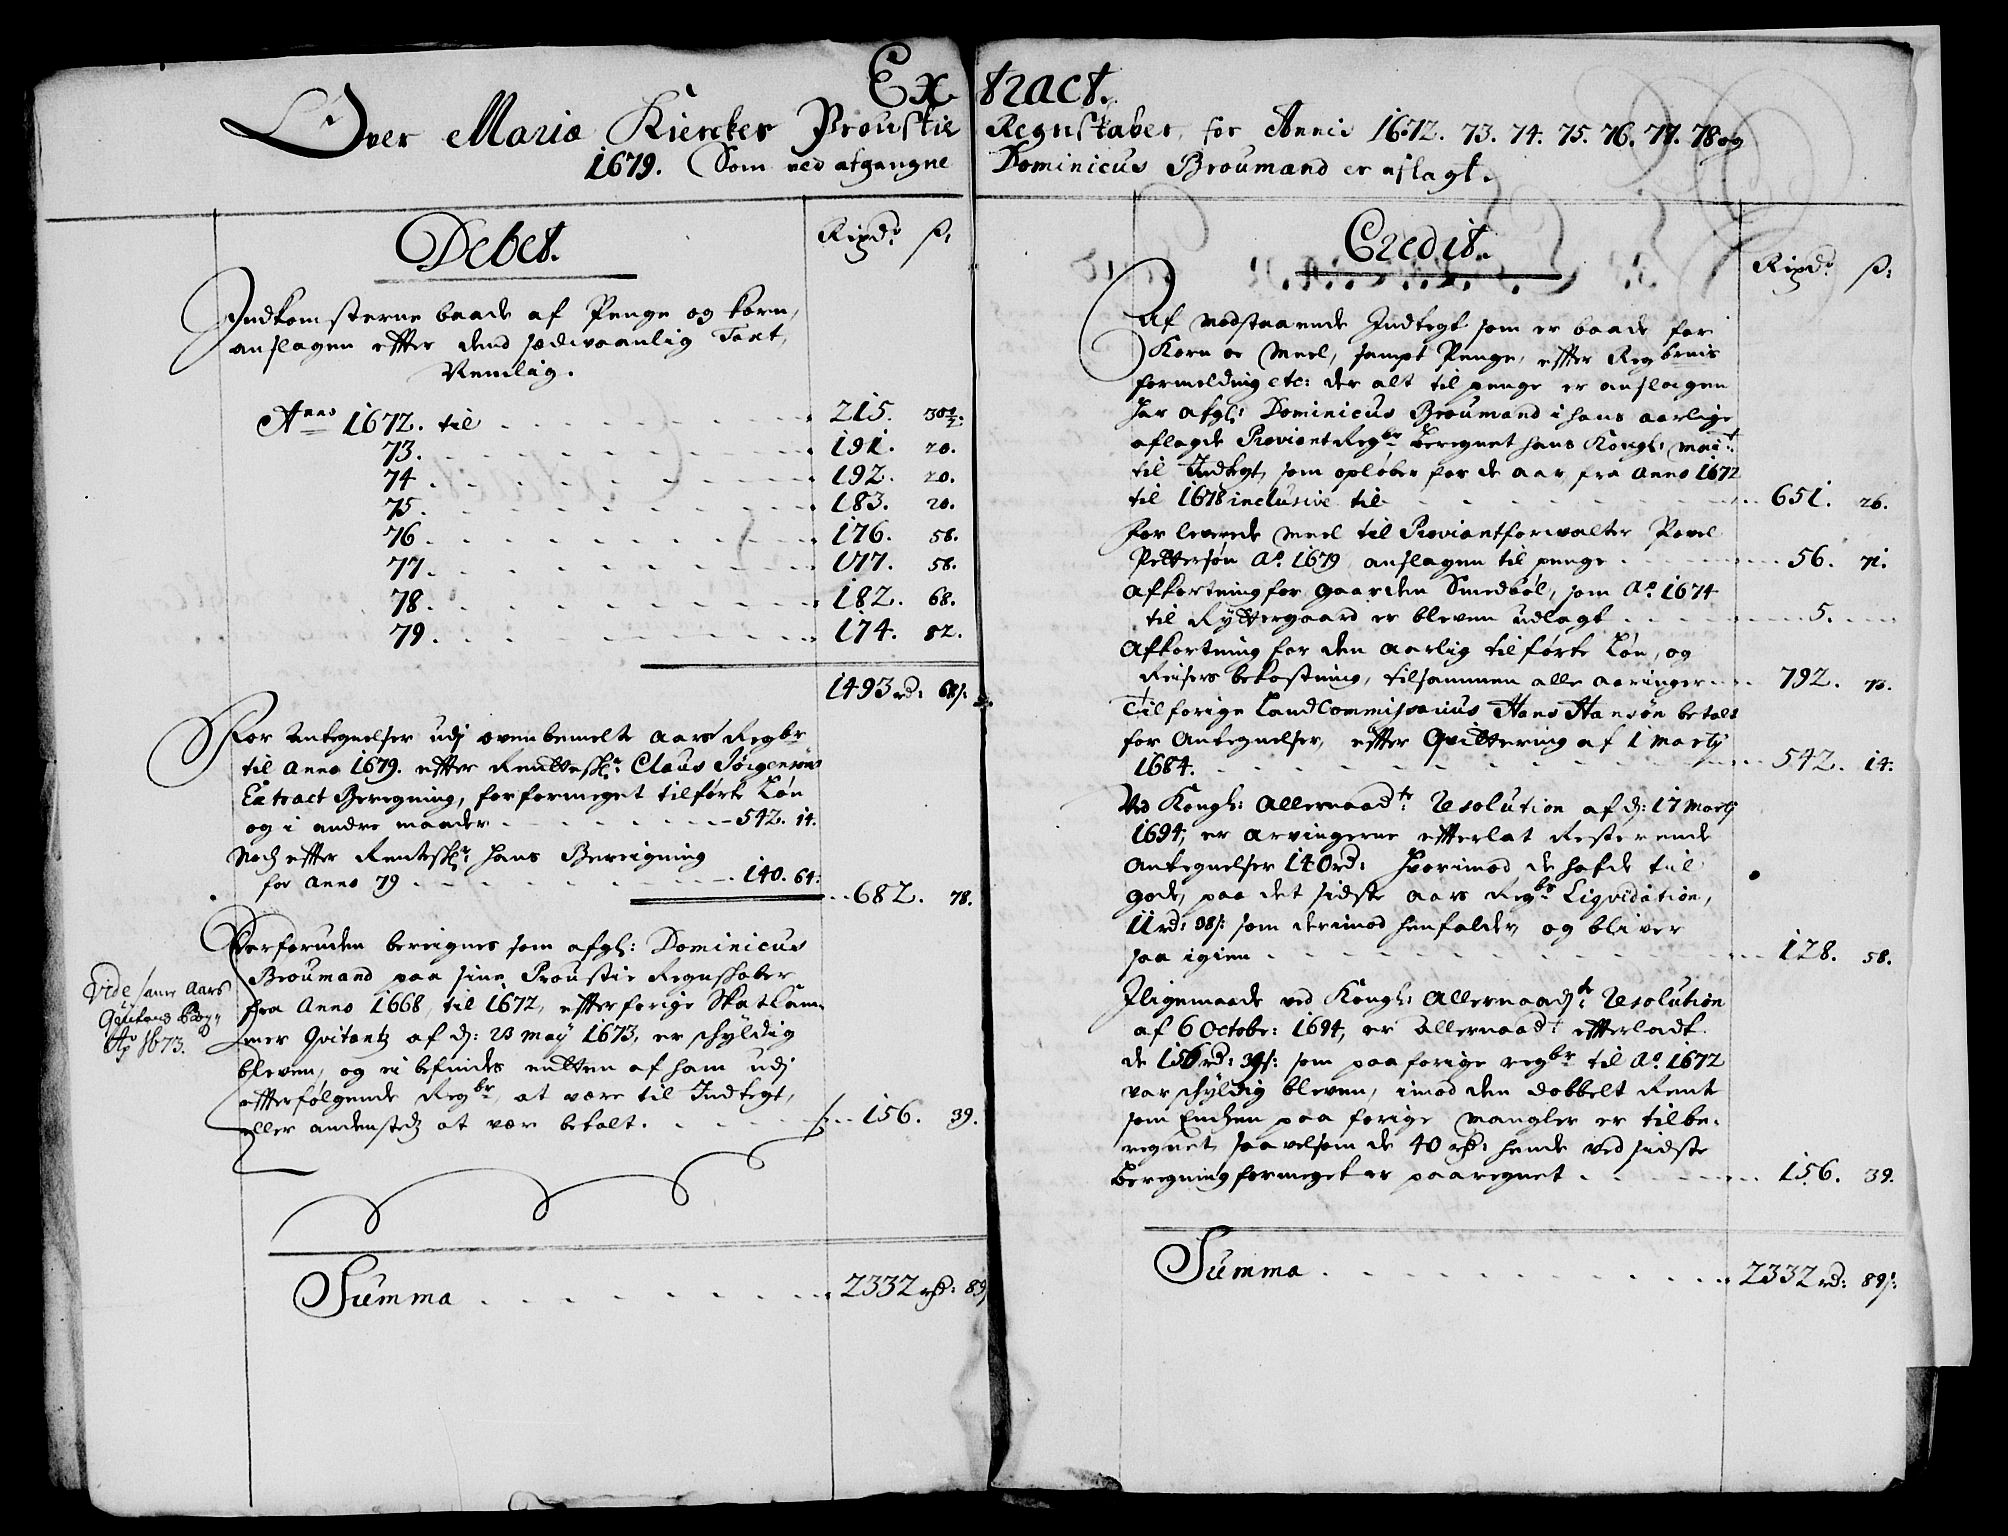 Extract.
Over Mariæ Kierckes Proustie Regnskaber, for Annis 1672. 73. 74. 75. 76. 77. 78 og
1679. Som ved afgangne Dominicus Broumand er aflagt.
Debet.
Rixdr. ß:
Indkomsterne baade af Penge og korn,
anslagen effter dend sædvaanlig Taxt,
Nemlig.
Anno 1672. til 215. 30½.
73. 191. 20.
74 192. 20.
75. 183. 20.
76. 176. 58.
77. 177. 58.
78. 182. 68.
79. 174. 82.
1493 rd: 68ß:
For Antegnelser udj ovenbemelte Aars Regbr
til Anno 1679. effter Renttesskr: Claus Jørgensøns
Extract Beregning, for formeget tilførte Løn
og i andre maader 542. 14.
Noch effter Rentesskr: hans Bereigning
for Anno 79 140. 64.
682. 78.
Derforuden bereignes som afgl: Dominicus
Broumand paa sine Proustie Regnskaber
fra Anno 1668 til 1672, effter forige Skatkam-
mer Qvitantz af d: 23 May 1673, er schyldig
bleven, og ei befindes endten af ham udj
effterfølgende Regbr, at være til Indtegt,
eller andenstedz at vær betalt. 156. 39.
Vide samme Aars
Ao 1673.
Summa 2332 rd: 89ß
Credit.
Rixdr. ß:
Af modstaaende Indtegt som er baade for
Korn oc Meel, sampt Penge, effter Regbrnis
formelding etc: der alt til penge er anslagen
har afgl: Dominicus Broumand i hans aarlige
aflagde Proviant Regbr beregnet hans Kongl: Mait:
til Indtegt, som opløber for de aar fra Anno 1672
til 1678 inclusive til 651. 26.
For leverede Meel til Proviantforwalter Povel
Pettersøn Ao 1679 anslagen til penge 56. 71.
Afkortning for gaarden Smedbøl, som Ao 1674
til Ryttergaard er bleven udlagt 5.
Afkortning for den Aarlig tilførte Løn, og
Reisers bekostning, tilsammen alle aaringer 792. 73.
Til forige Land Commissarius Hans Hansøn betalt
for Antegnelser, effter Qvittering af 1 Martij
1684. 542. 14.
Ved Kongl: Allernaadte: Resolution af d: 17 Martij
1694, er Arvingerne effterlat Resterende
Antegnelser 140 rd: hvorimod de hafde til
gode, paa det sidste Aars Regbs Liqvidation,
11 rd: 98ß: som derimod henfalder og bliver
saa igien 128. 58.
Iligemaade ved Kongl: Allernaadte: Resolution
af 6 Octobr: 1694, er Allernaadt effterladt
de 156 rd: 39ß: som paa forige regbr til Ao 1672
var schyldig bleven, imod den Dobbelt Rente
som Enchen paa forige Mangler er tilbe-
regnet, saavelsom de 40 rd: hende ved sidste
Beregning formeget er paaregnet 156. 39.
Summa 2332 rd: 89ß: